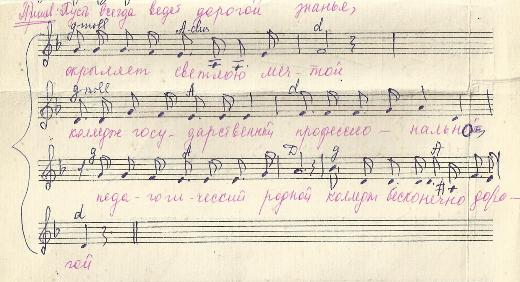 Припев: Пусть всегда ведет дорогой знанье,
g-moll A-dur d
окрыляет светлою меч-той
g-moll A d
колледж госу-дарственный профессио-нальной
g A D g A
педа-гоги-ческий родной колледж бесконечно доро-
d
гой